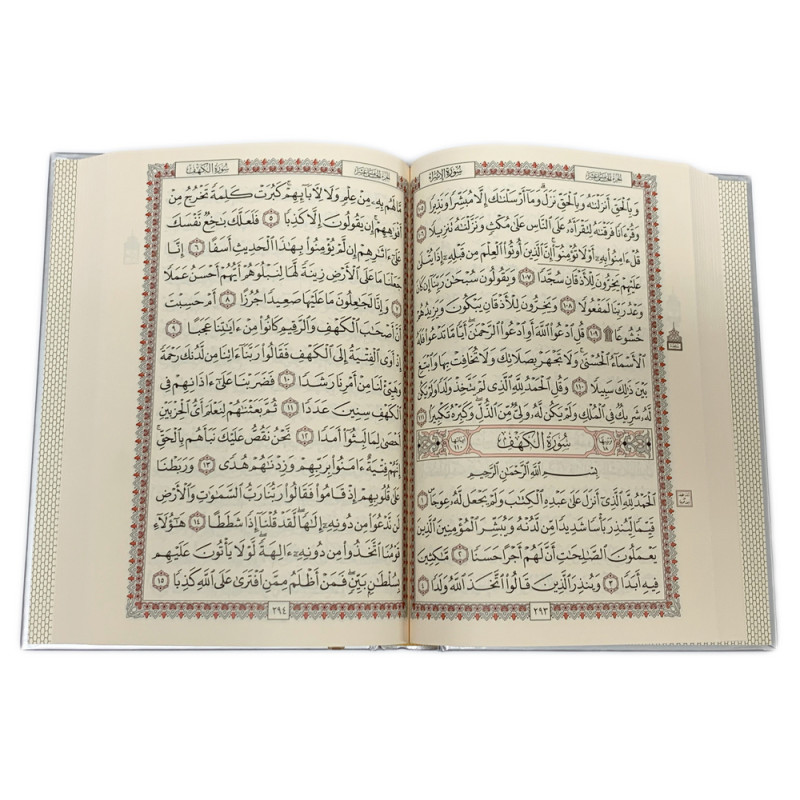 سُورَةُ الإِسْرَاءِ
الجزء الخامس عشر
وَبِالْحَقِّ أَنزَلْنَاهُ وَبِالْحَقِّ نَزَلَ وَمَا أَرْسَلْنَاكَ إِلَّا مُبَشِّرًا وَنَذِيرًا ١٠٥
وَقُرْءَانًا فَرَقْنَاهُ لِتَقْرَأَهُ عَلَى النَّاسِ عَلَىٰ مُكْثٍ وَنَزَّلْنَاهُ تَنزِيلًا ١٠٦
قُلْ ءَامِنُوا بِهِ أَوْ لَا تُؤْمِنُوا إِنَّ الَّذِينَ أُوتُوا الْعِلْمَ مِن قَبْلِهِ إِذَا يُتْلَىٰ
عَلَيْهِمْ يَخِرُّونَ لِلْأَذْقَانِ سُجَّدًا ١٠٧ وَيَقُولُونَ سُبْحَانَ رَبِّنَا إِن كَانَ
وَعْدُ رَبِّنَا لَمَفْعُولًا ١٠٨ وَيَخِرُّونَ لِلْأَذْقَانِ يَبْكُونَ وَيَزِيدُهُمْ
خُشُوعًا ۩ ١٠٩ قُلِ ادْعُوا اللَّهَ أَوِ ادْعُوا الرَّحْمَٰنَ أَيًّا مَّا تَدْعُوا فَلَهُ
الْأَسْمَاءُ الْحُسْنَىٰ وَلَا تَجْهَرْ بِصَلَاتِكَ وَلَا تُخَافِتْ بِهَا وَابْتَغِ
بَيْنَ ذَٰلِكَ سَبِيلًا ١١٠ وَقُلِ الْحَمْدُ لِلَّهِ الَّذِي لَمْ يَتَّخِذْ وَلَدًا وَلَمْ يَكُن
لَّهُ شَرِيكٌ فِي الْمُلْكِ وَلَمْ يَكُن لَّهُ وَلِيٌّ مِّنَ الذُّلِّ وَكَبِّرْهُ تَكْبِيرًا ١١١
سُورَةُ الْكَهْفِ
بِسْمِ اللَّهِ الرَّحْمَٰنِ الرَّحِيمِ
الْحَمْدُ لِلَّهِ الَّذِي أَنزَلَ عَلَىٰ عَبْدِهِ الْكِتَابَ وَلَمْ يَجْعَل لَّهُ عِوَجًا ١
قَيِّمًا لِّيُنذِرَ بَأْسًا شَدِيدًا مِّن لَّدُنْهُ وَيُبَشِّرَ الْمُؤْمِنِينَ الَّذِينَ
يَعْمَلُونَ الصَّالِحَاتِ أَنَّ لَهُمْ أَجْرًا حَسَنًا ٢ مَّاكِثِينَ
فِيهِ أَبَدًا ٣ وَيُنذِرَ الَّذِينَ قَالُوا اتَّخَذَ اللَّهُ وَلَدًا ٤
٢٩٣
الجزء الخامس عشر
سُورَةُ الْكَهْفِ
مَّا لَهُم بِهِ مِنْ عِلْمٍ وَلَا لِآبَائِهِمْ كَبُرَتْ كَلِمَةً تَخْرُجُ مِنْ
أَفْوَاهِهِمْ إِن يَقُولُونَ إِلَّا كَذِبًا ٥ فَلَعَلَّكَ بَاخِعٌ نَّفْسَكَ
عَلَىٰ ءَاثَارِهِمْ إِن لَّمْ يُؤْمِنُوا بِهَٰذَا الْحَدِيثِ أَسَفًا ٦ إِنَّا
جَعَلْنَا مَا عَلَى الْأَرْضِ زِينَةً لَّهَا لِنَبْلُوَهُمْ أَيُّهُمْ أَحْسَنُ عَمَلًا
٧ وَإِنَّا لَجَاعِلُونَ مَا عَلَيْهَا صَعِيدًا جُرُزًا ٨ أَمْ حَسِبْتَ
أَنَّ أَصْحَابَ الْكَهْفِ وَالرَّقِيمِ كَانُوا مِنْ ءَايَاتِنَا عَجَبًا ٩
إِذْ أَوَى الْفِتْيَةُ إِلَى الْكَهْفِ فَقَالُوا رَبَّنَا ءَاتِنَا مِن لَّدُنكَ رَحْمَةً
وَهَيِّئْ لَنَا مِنْ أَمْرِنَا رَشَدًا ١٠ فَضَرَبْنَا عَلَىٰ ءَاذَانِهِمْ فِي
الْكَهْفِ سِنِينَ عَدَدًا ١١ ثُمَّ بَعَثْنَاهُمْ لِنَعْلَمَ أَيُّ الْحِزْبَيْنِ
أَحْصَىٰ لِمَا لَبِثُوا أَمَدًا ١٢ نَّحْنُ نَقُصُّ عَلَيْكَ نَبَأَهُم بِالْحَقِّ
إِنَّهُمْ فِتْيَةٌ ءَامَنُوا بِرَبِّهِمْ وَزِدْنَاهُمْ هُدًى ١٣ وَرَبَطْنَا
عَلَىٰ قُلُوبِهِمْ إِذْ قَامُوا فَقَالُوا رَبُّنَا رَبُّ السَّمَاوَاتِ وَالْأَرْضِ
لَن نَّدْعُوَ مِن دُونِهِ إِلَٰهًا لَّقَدْ قُلْنَا إِذًا شَطَطًا ١٤ هَٰؤُلَاءِ
قَوْمُنَا اتَّخَذُوا مِن دُونِهِ ءَالِهَةً لَّوْلَا يَأْتُونَ عَلَيْهِم
بِسُلْطَانٍ بَيِّنٍ فَمَنْ أَظْلَمُ مِمَّنِ افْتَرَىٰ عَلَى اللَّهِ كَذِبًا ١٥
٢٩٤